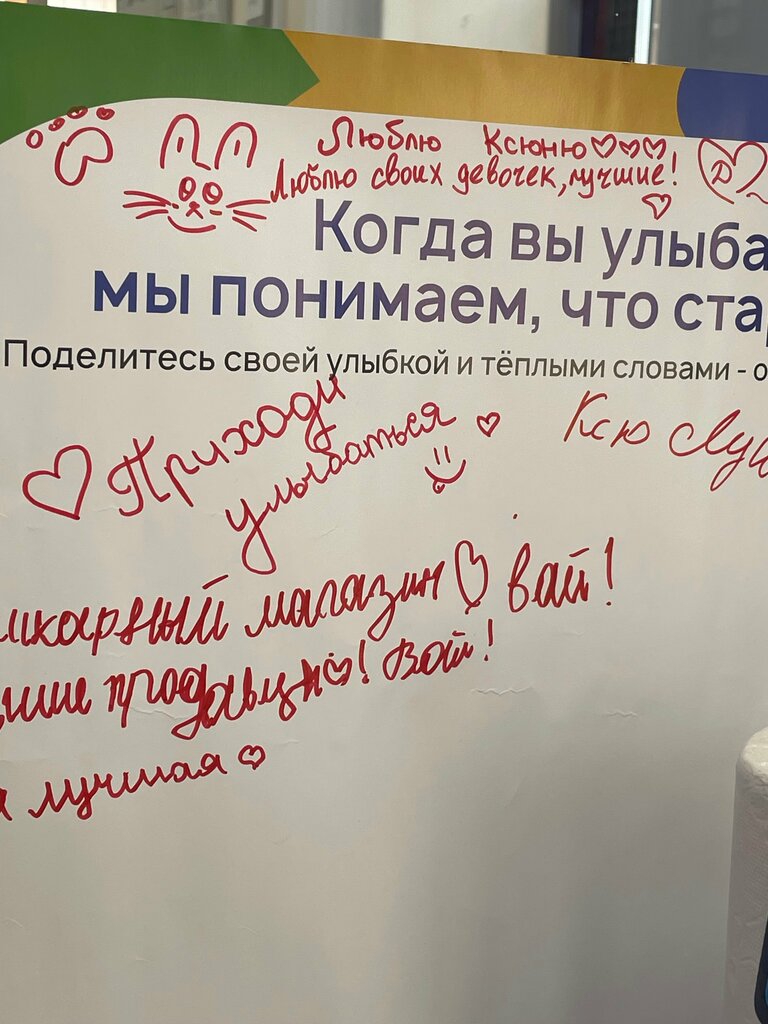 Люблю Ксюню
Люблю своих девочек, лучшие!
Д
Когда вы улыба
мы понимаем, что ста
Поделитесь своей улыбкой и тёплыми словами - о
Приходи
улыбаться
Ксю Луч
икарный магазин вай!
чшие продавцы! Вай!
я лучшая